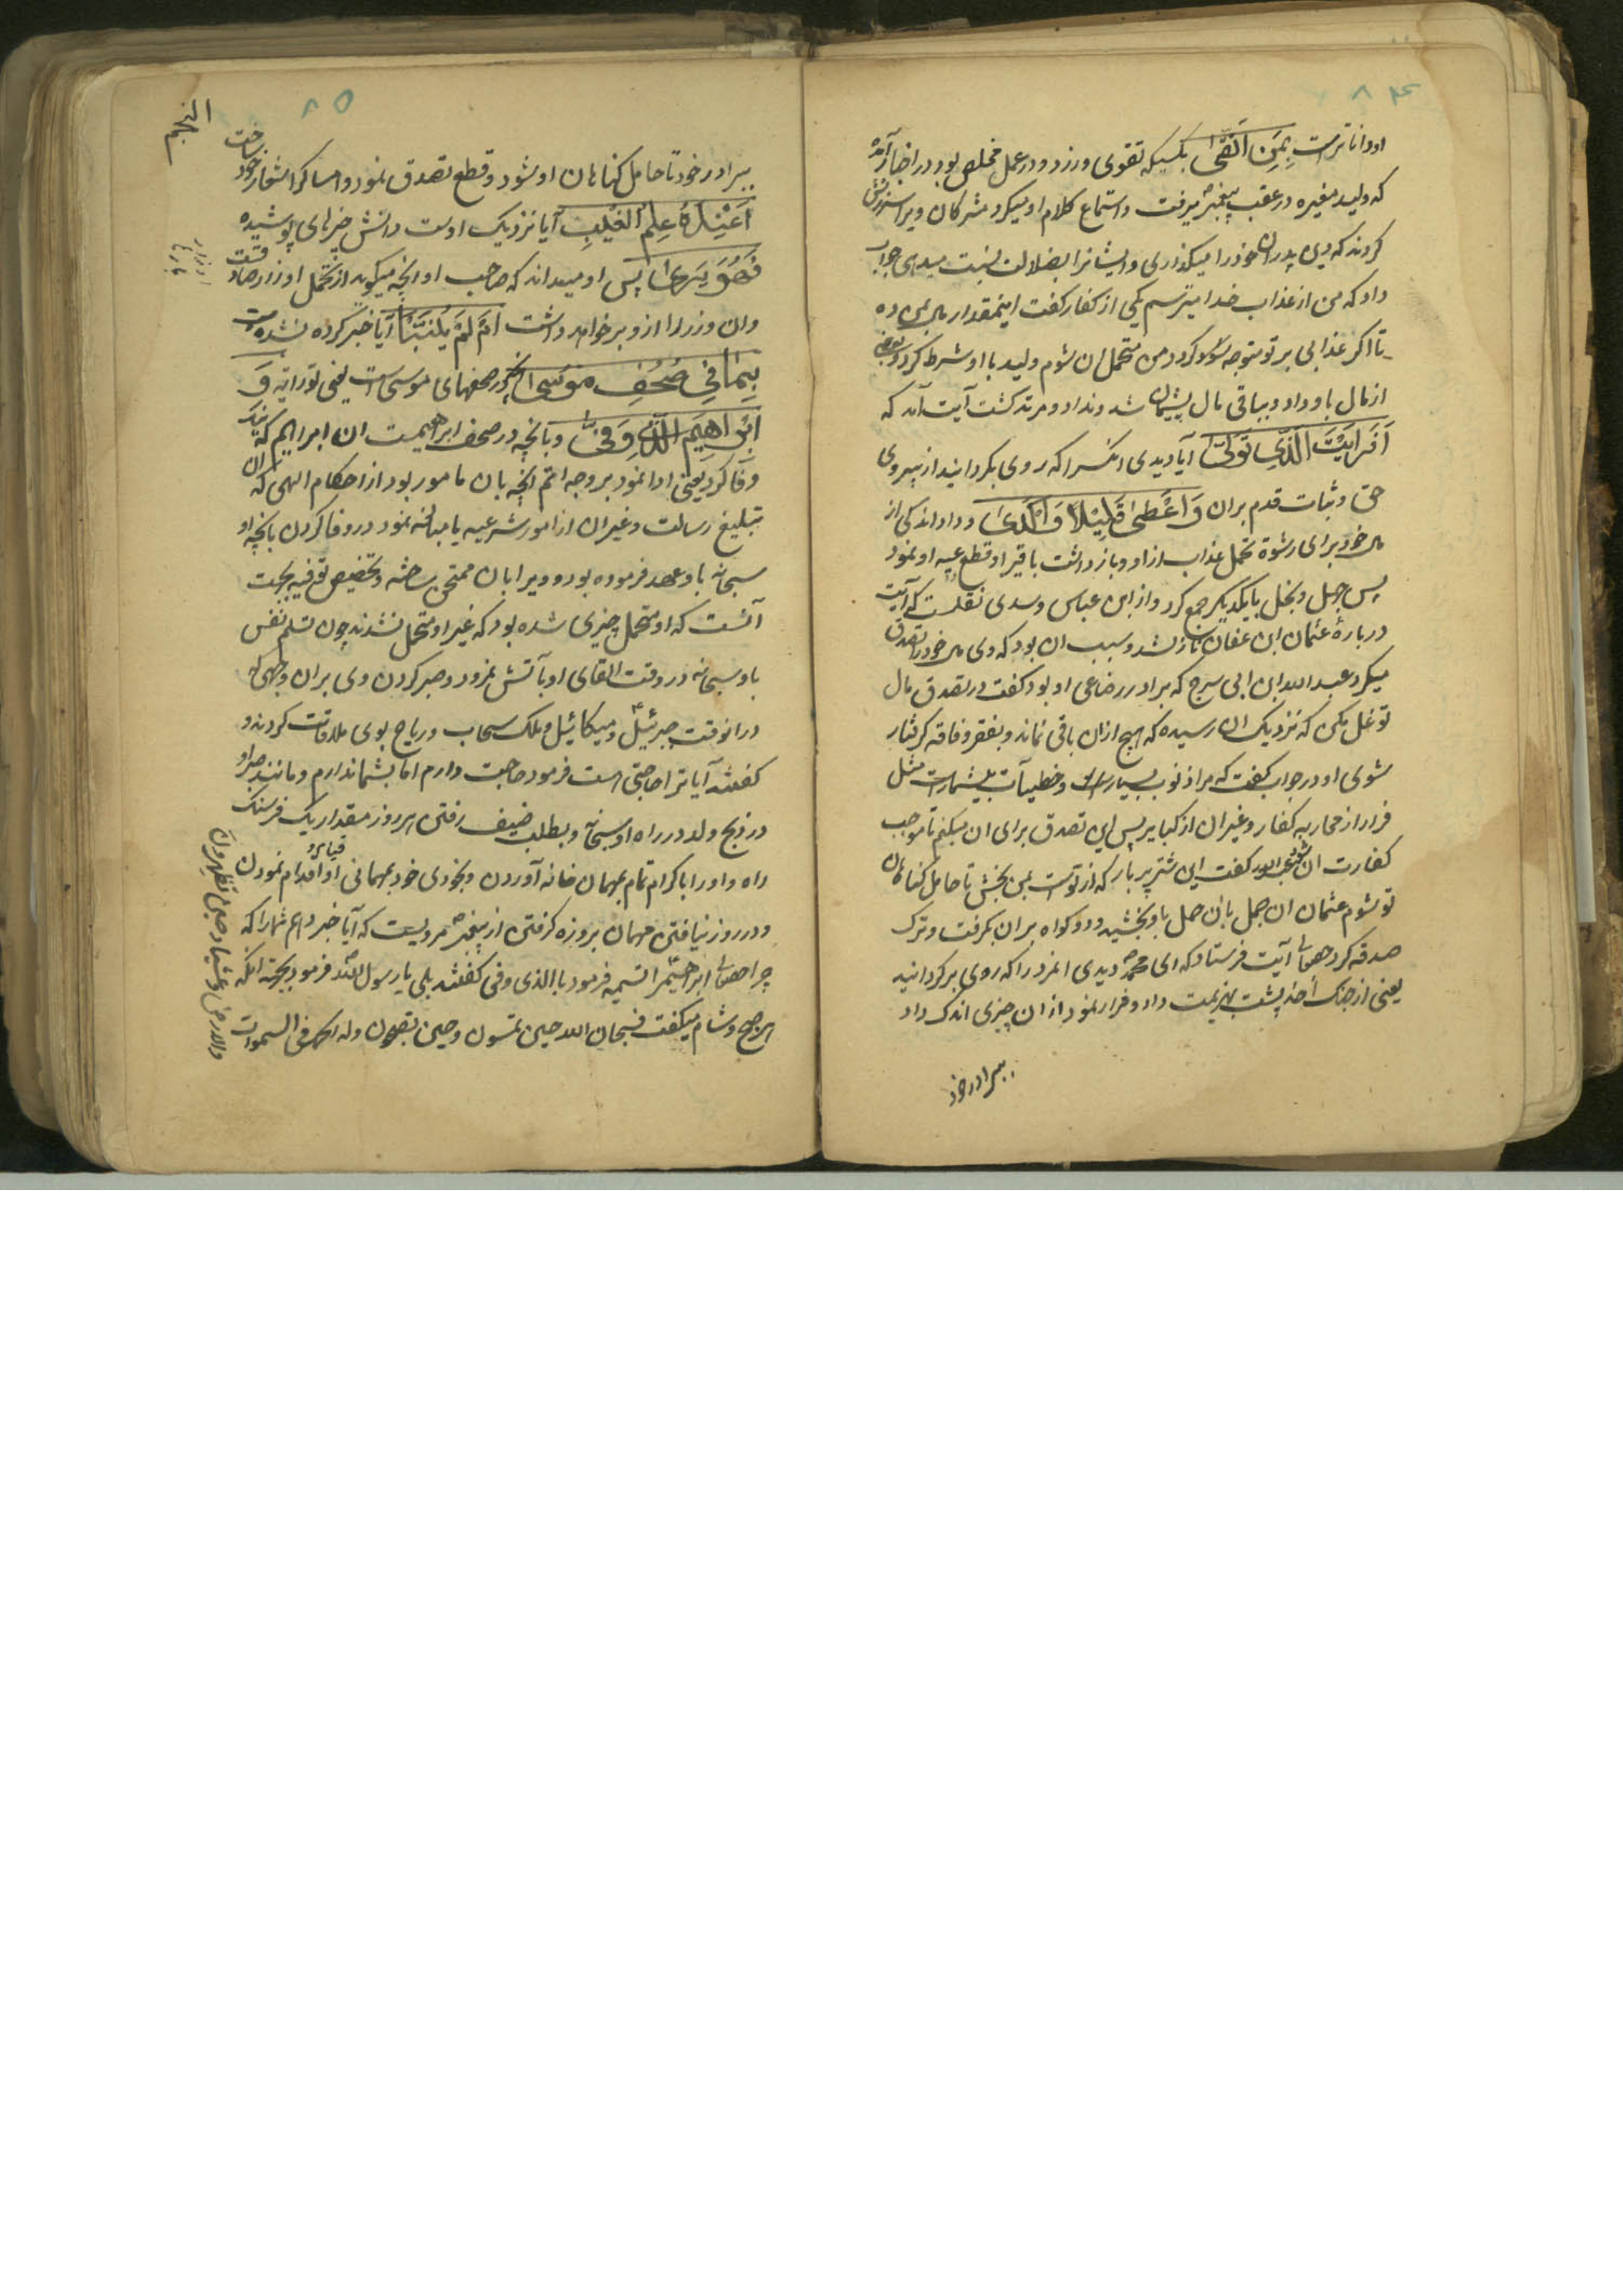 ۸۴
او داناترست بِمَنِ اتَّقٰی بکسیکه تقوی ورزد و در عمل مخلص بود در اخبار آمده
که ولید مغیره در عقب پیغمبر میرفت و استماع کلام او میکرد مشرکان ویرا سرزنش
کردند که دین پدران خود را میکذاری و ایشانرا بضلالت نسبت میدهی جواب
داد که من از عذاب خدا میترسم یکی از کفار کفت اینمقدار مال بمن ده
تا اکر عذابی بر تو متوجه شود من متحمل ان شوم ولید با او شرط کرد و بعضی
از مال باو داد و بباقی مال پشیمان شد و نداد و مرتد کشت آیت آمد که
اَفَرَاَیْتَ الَّذِی تَوَلّٰی آیا دیدی انکسرا که روی بکردانید از پیروی
حق و ثبات قدم بران وَاَعْطٰی قَلِیْلًا وَاَکْدٰی و داد اندکی از
مال خود برای رشوة تحمل عذاب ازاو و باز داشت باقیرا و قطع عطیه او نمود
پس جهل و بخل با یکدیکر جمع کرد و از ابن عباس و سدی نقلست که آیت
دربارهٔ عثمان ابن عفان نازلشد و سبب ان بود که وی مال خود را تصدق
میکرد عبد الله ابن ابی سرح که برادر رضاعی او بود کفت در تصدق مال
توغل مکن که نزدیک ان رسیده که هیچ ازان باقی نماند و بفقر و فاقه کرفتار
شوی او در جواب کفت که مرا ذنوب بسیارست و خطیآت بیشمارست مثل
فرار از محاربه کفار و غیر ان از کبایر پس این تصدق برای ان میکنم تا موجب
کفارت ان شود عبد الله کفت این شتر پر بار که از توست بمن بخش تا حامل کناهان
تو شوم عثمان ان جمل بان حمل باو بخشید و دو کواه بران بکرفت و ترک
صدقه کرد حقتعالی آیت فرستاد که ای محمد دیدی انمرد را که روی برکردانید
یعنی از جنک احد پشت بهزیمت داد و فرار نمود ازان چیزی اندک داد
ببرادر خود
۸۵
ببرادر خود تا حامل کناهان او شود و قطع تصدق نمود و امساک را شعار خود ساخت
اَعِنْدَهٗ عِلْمُ الْغَیْبِ آیا نزدیک اوست دانش چیزهای پوشیده
فَهُوَ یَرٰی پس او میداند که صاحب او انچه میکوید از تحمل اوزار صادقست
وان وزر را ازو برخواهد داشت اَمْ لَمْ یُنَبَّأْ آیا خبر کرده نشده است
بِمَا فِی صُحُفِ مُوْسٰی انچه در صحفهای موسی است یعنی توراتِه وَ
اِبْرَاهِیْمَ الَّذِی وَفّٰی و بانچه در صحف ابراهیمست ان ابراهیم که نیک
وفا کرد یعنی ادا نمود بر وجه اتم انچه بان مامور بود از احکام الهی که ان
تبلیغ رسالت و غیر ان از امور شرعیه یا مبالغه نمود در وفا کردن بانچه او
سبحانه باو عهد فرموده بود و ویرا بان ممتحن ساخته و تخصیص توفیه بجهت
آنست که او متحمل چیزی شده بود که غیر او متحمل نشدند چون تسلیم نفس
باو سبحانه در وقت القای او بآتش نمرود و صبر کردن وی بران وجهی که
درانوقت جبرئیل و میکائیل و ملک سحاب و ریاح بوی ملاقات کردند و
کفتند آیا ترا حاجتی است فرمود حاجت دارم اما بشما ندارم و مانند صبر او
در ذبح ولد در راه او سبحانه و بطلب ضیف رفتن هر روز مقدار یک فرسنک
راه و او را باکرام تمام بمهمان خانه آوردن و بخودی خود بمهمانی او اقدام نمودن
و در روز نیافتن مهمان بروزه کرفتن از پیغمبر مرویست که آیا خبر دهم شما را که
چرا حقتعالی ابراهیم را تسمیه فرمود بالذی وفی کفتند بلی یا رسول الله فرمود بجهته انکه
هر صبح و شام میکفت فسبحان الله حین تمسون و حین تصبحون وله الحمد فی السموات
والارض وعشیا وحین تظهرون